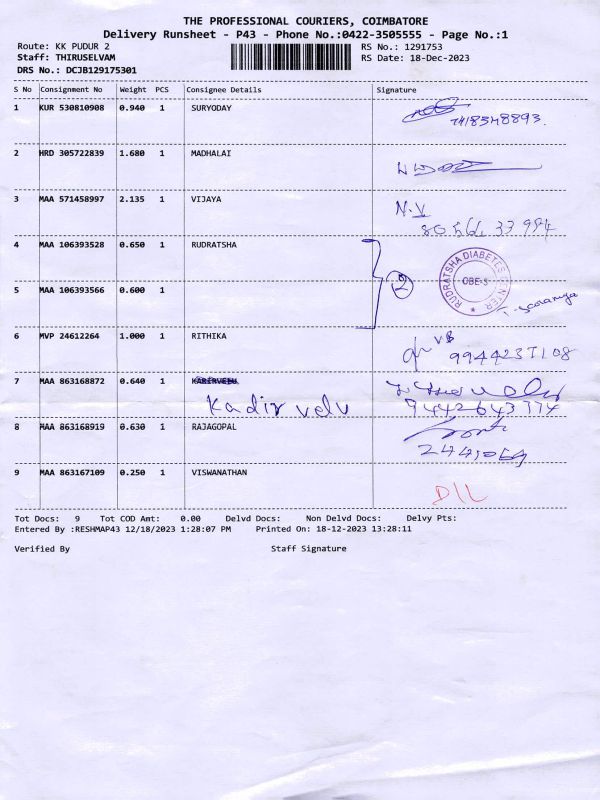 THE PROFESSIONAL COURIERS, COIMBATORE
Delivery Runsheet - P43 - Phone No.:0422-3505555 - Page No.:1
Route: KK PUDUR 2 RS No.: 1291753
Staff: THIRUSELVAM RS Date: 18-Dec-2023
DRS No.: DCJB129175301
S No Consignment No Weight PCS Consignee Details Signature
1 KUR 530810908 0.940 1 SURYODAY
2 HRD 305722839 1.680 1 MADHALAI
3 MAA 571458997 2.135 1 VIJAYA
N.V
4 MAA 106393528 0.650 1 RUDRATSHA
2
RUDRATSHA DIABETES CENTER
CBE-5
5 MAA 106393566 0.600 1
6 MVP 24612264 1.000 1 RITHIKA
7 MAA 863168872 0.640 1
Kadir velu 9442643774
8 MAA 863168919 0.630 1 RAJAGOPAL
9 MAA 863167109 0.250 1 VISWANATHAN
D/L
Tot Docs: 9 Tot COD Amt: 0.00 Delvd Docs: Non Delvd Docs: Delvy Pts:
Entered By :RESHMAP43 12/18/2023 1:28:07 PM Printed On: 18-12-2023 13:28:11
Verified By Staff Signature